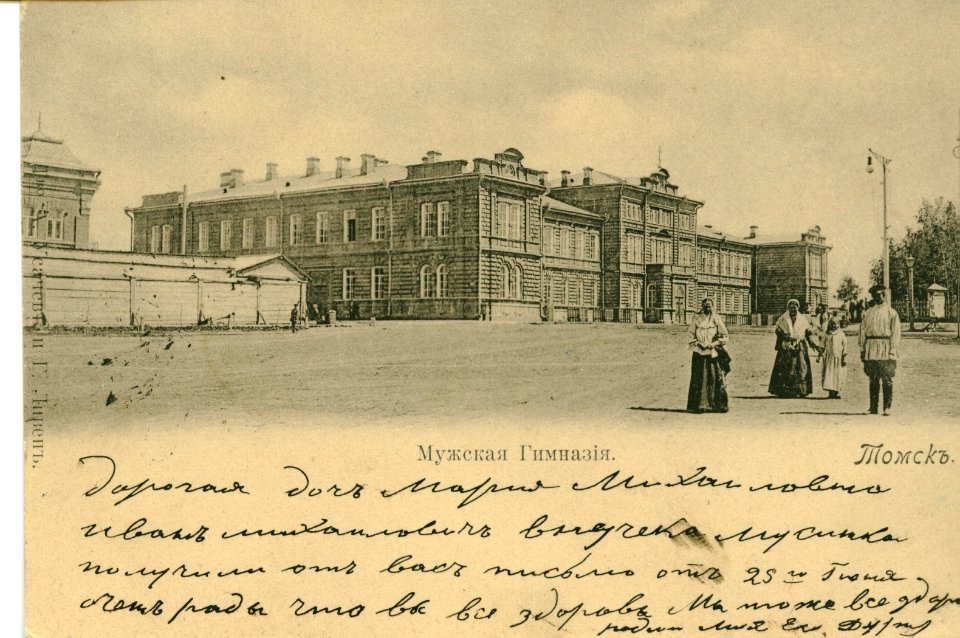 Мужская Гимназія.
Томскъ.
Дорогая дочь Мария Михаиловна
Иванъ михаиловичъ внучека мусинка
получили отъ васъ письмо отъ 25 го Июня
очень рады что вы все здоровы Мы тоже все здоро